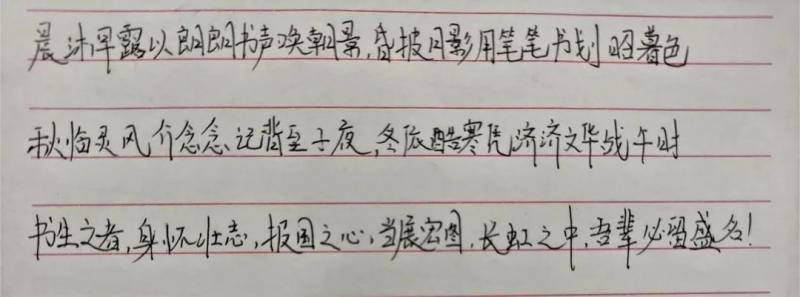 晨沐早露以朗朗书声唤朝景,昏披月影用笔笔书划昭暮色
秋临灵风介念念记背至子夜,冬依酷寒凭济济文华战午时
书生之者,身怀壮志,报国之心,当展宏图,长虹之中,吾辈必留盛名!